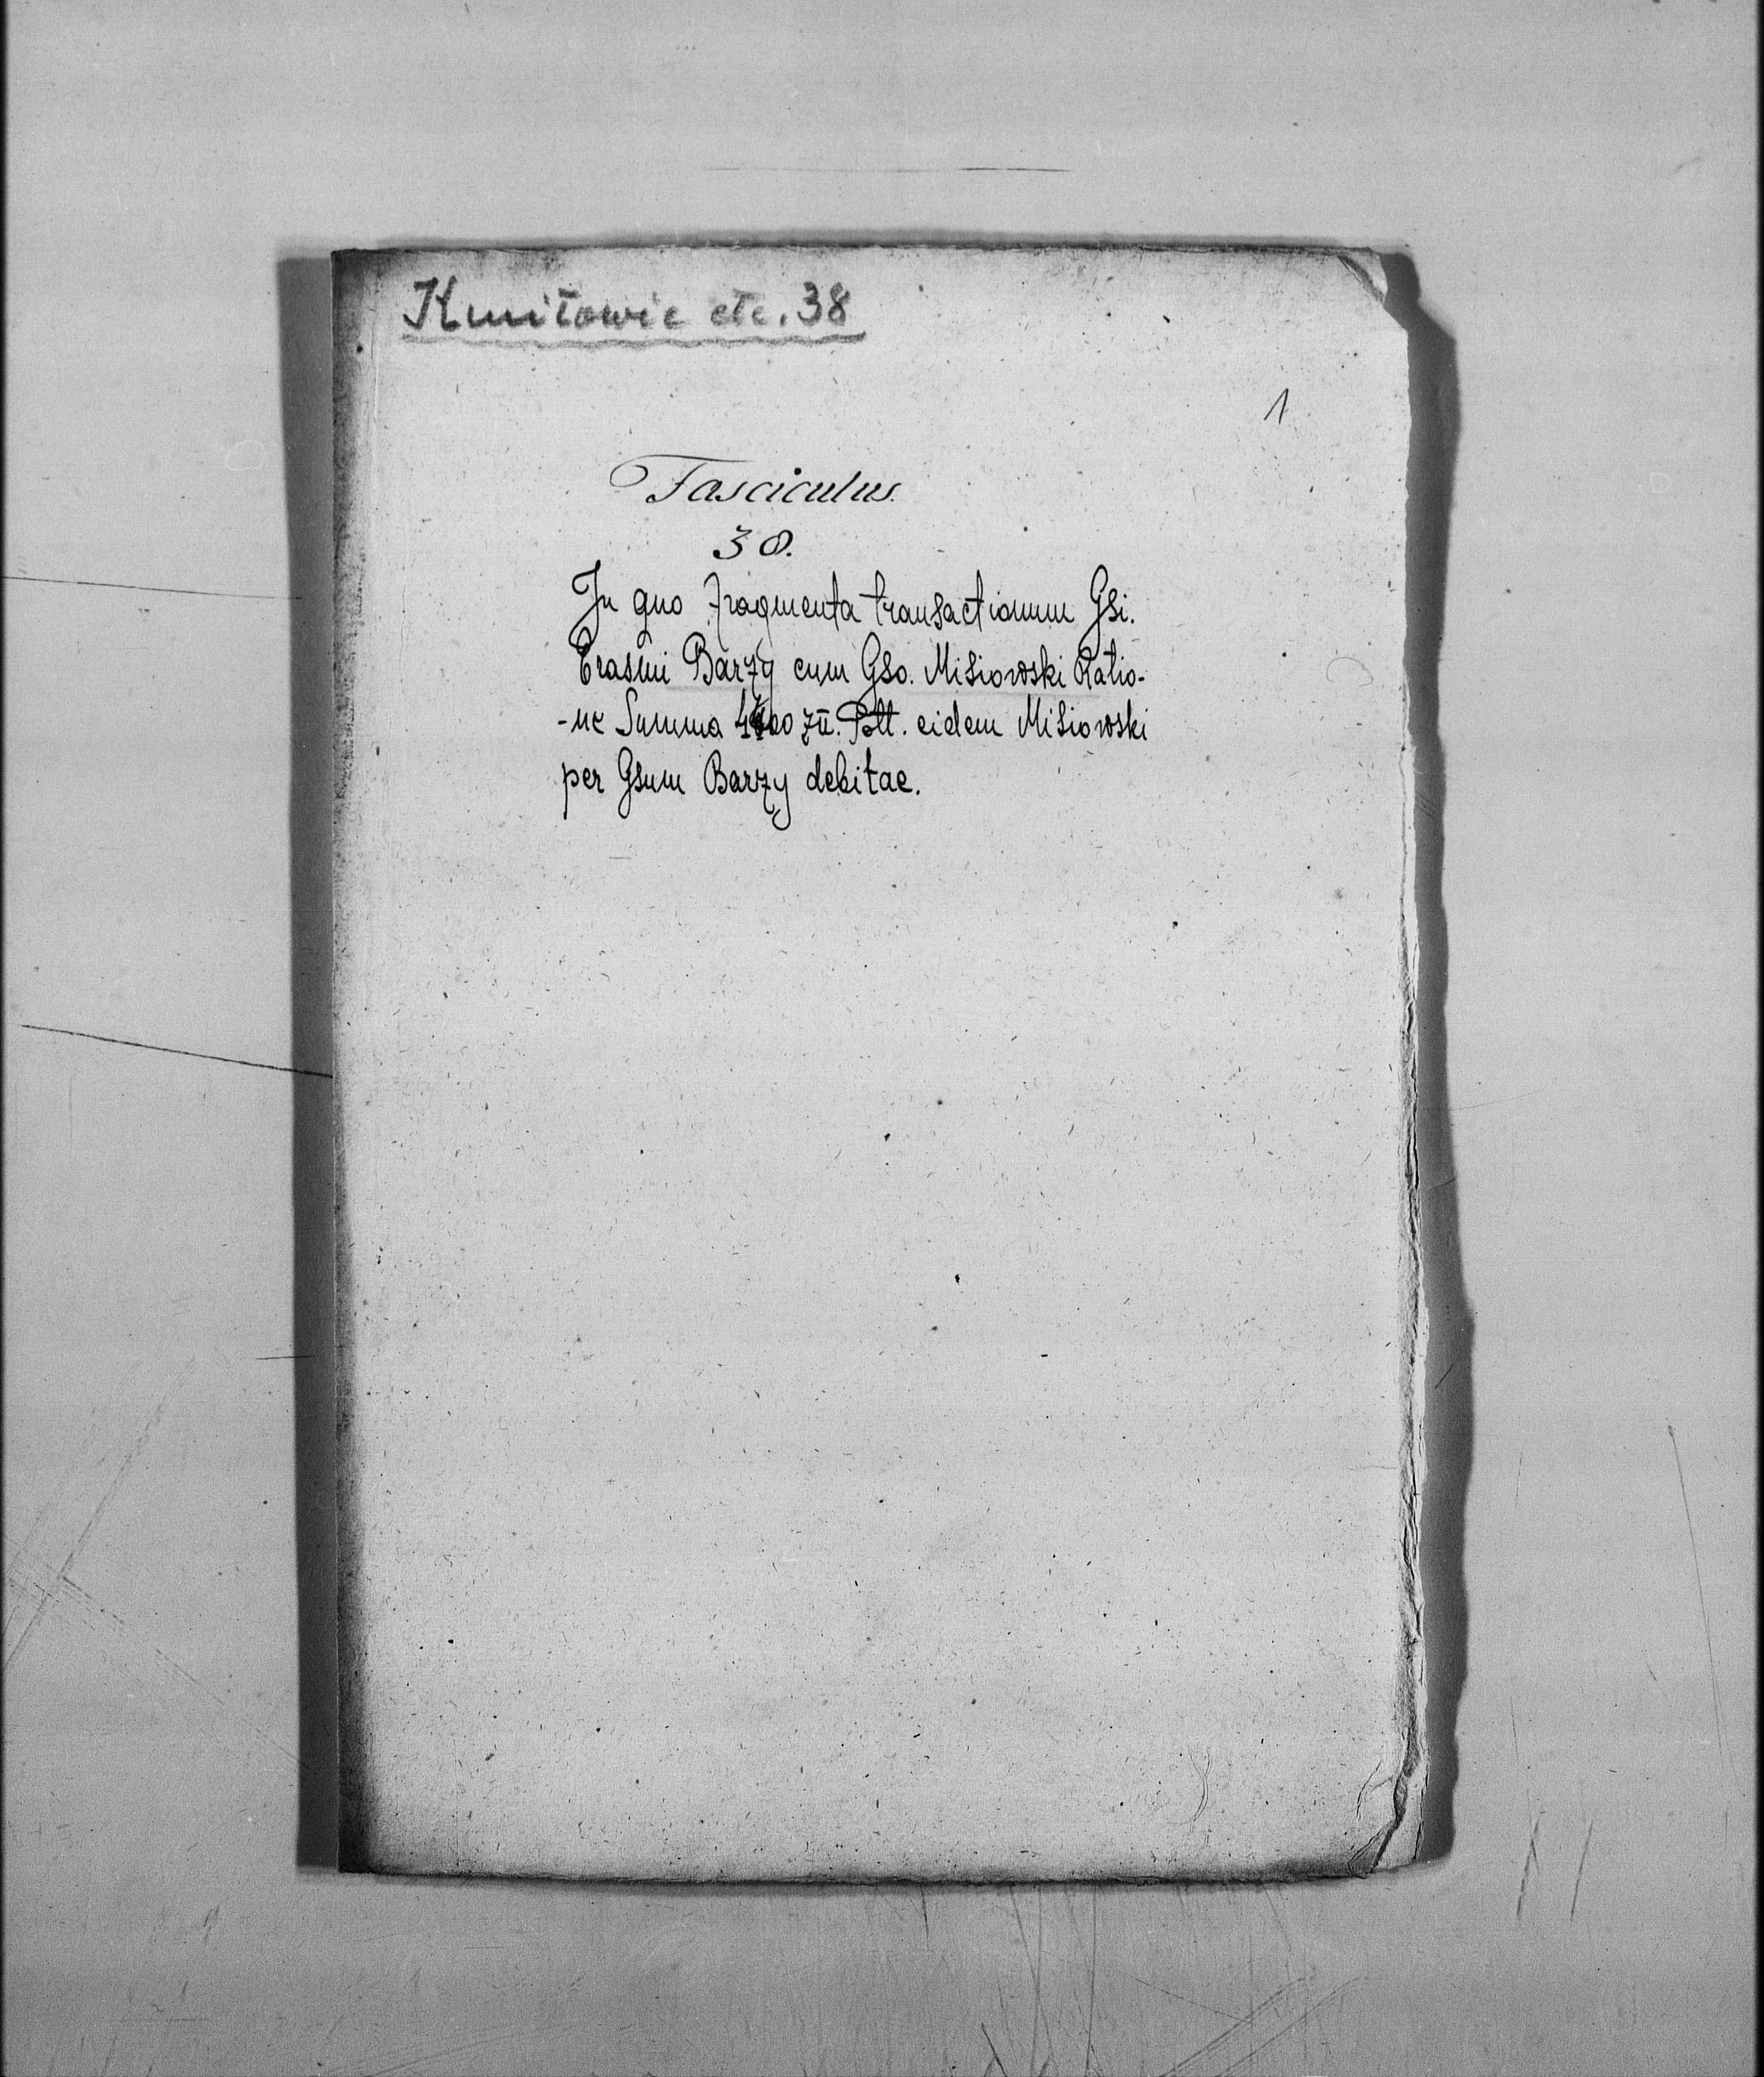 Kmitowie etc. 38
1
Fasciculus.
38.
In quo fragmenta transactionum Gsi.
Erasmi Barzy cum Gso. Misiowski Ratio-
-ne Summa Poll. eidem Misiowski
per Gsum Barzy debitae.